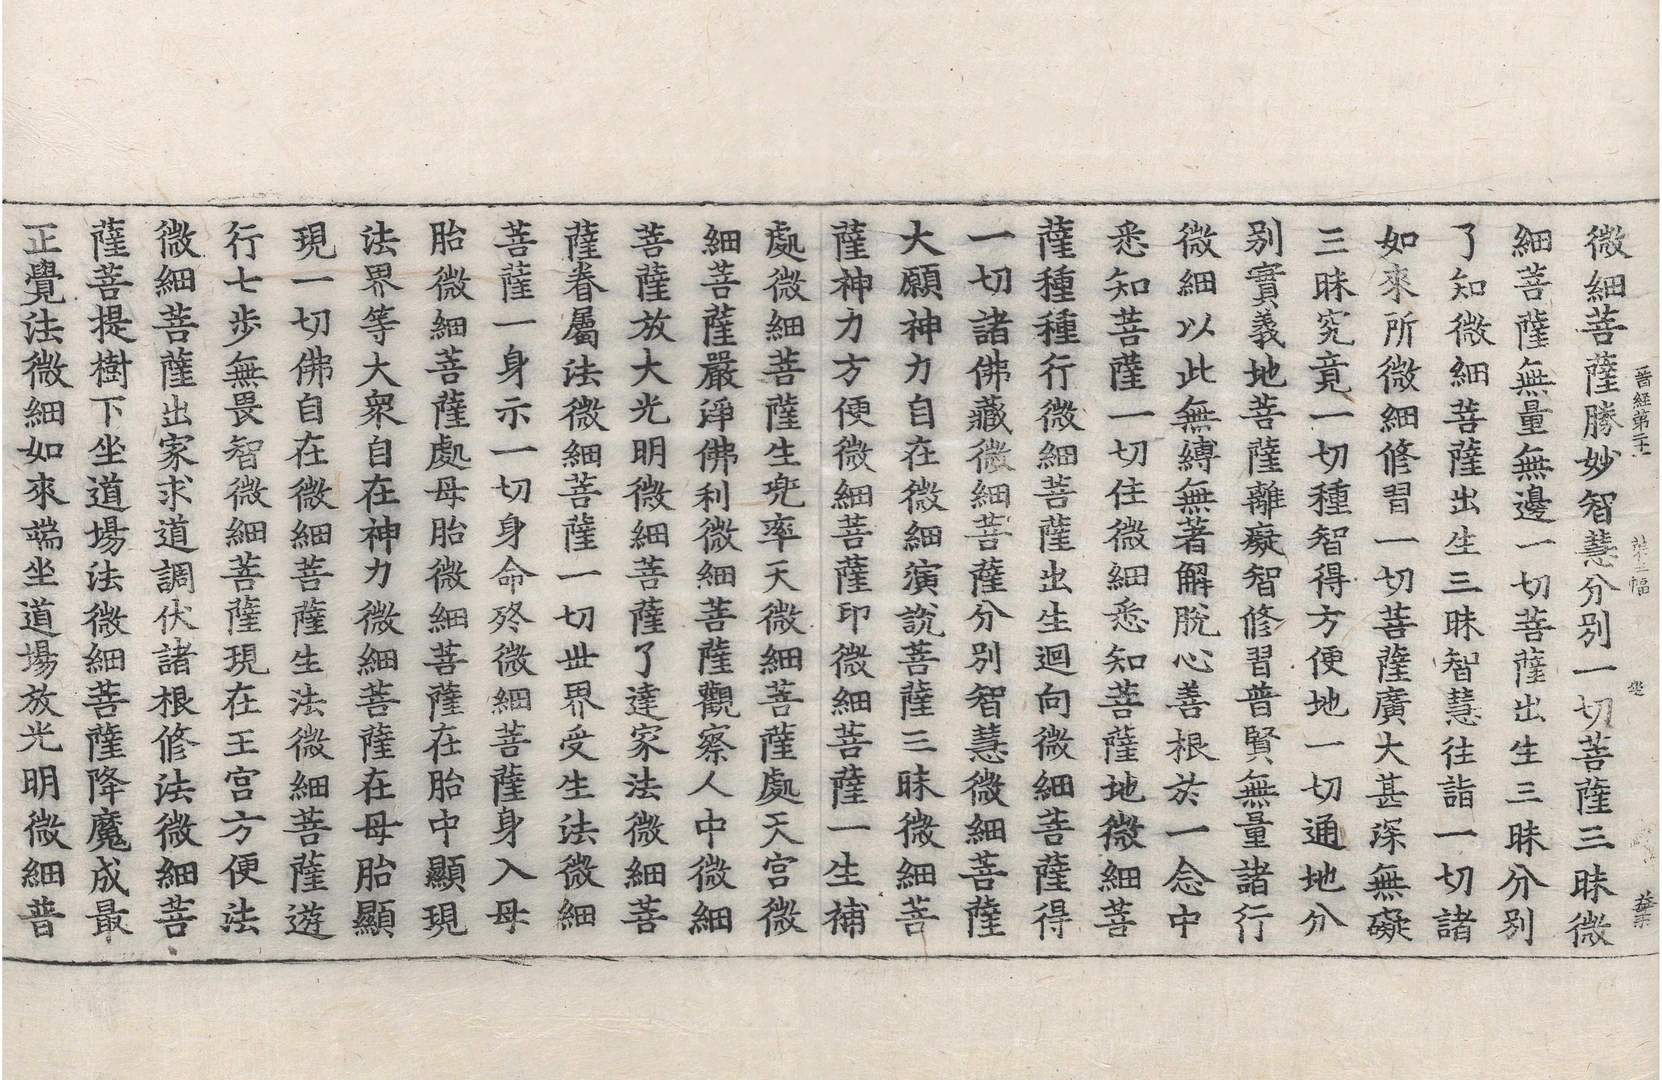 微細菩薩勝妙智慧分別一切菩薩三昧微
細菩薩無量無邊一切菩薩出生三昧分別
了知微細菩薩出生三昧智慧往詣一切諸
如來所微細修習一切菩薩廣大甚深無礙
三昧究竟一切種智得方便地一切通地分
別實義地菩薩離癡智修習普賢無量諸行
微細以此無縛無著解脫心善根於一念中
悉知菩薩一切住微細悉知菩薩地微細菩
薩種種行微細菩薩出生迴向微細菩薩得
一切諸佛藏微細菩薩分別智慧微細菩薩
大願神力自在微細演說菩薩三昧微細菩
薩神力方便微細菩薩印微細菩薩一生補
處微細菩薩生兜率天微細菩薩處天宮微
細菩薩嚴淨佛刹微細菩薩觀察人中微細
菩薩放大光明微細菩薩了達家法微細菩
薩眷屬法微細菩薩一切世界受生法微細
菩薩一身示一切身命終微細菩薩身入母
胎微細菩薩處母胎微細菩薩在胎中顯現
法界等大衆自在神力微細菩薩在母胎顯
現一切佛自在微細菩薩生法微細菩薩遊
行七步無畏智微細菩薩現在王宮方便法
微細菩薩出家求道調伏諸根修法微細菩
薩菩提樹下坐道場法微細菩薩降魔成最
正覺法微細如來端坐道場放光明微細普